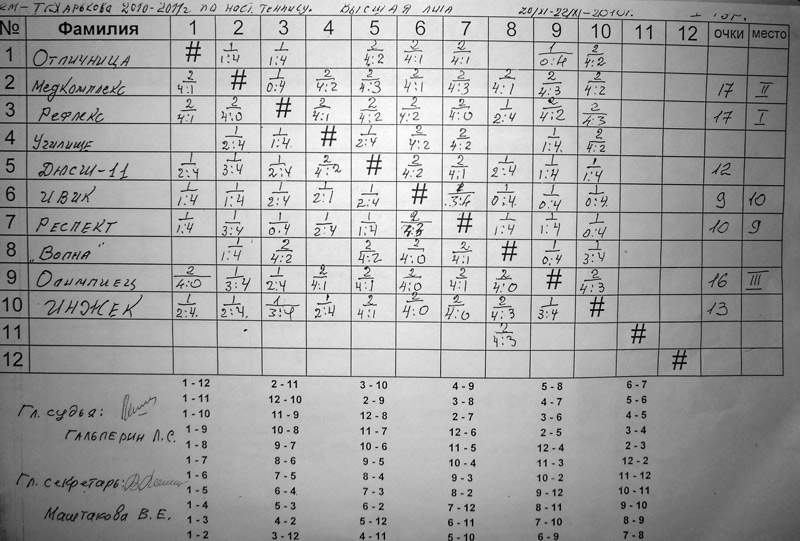 КМ- Т Г.ХАРЬКОВА 2010-2011г по наст. теннису. ВЫСШАЯ ЛИГА 20/XI-22/XI-2010г.
№ Фамилия 1 2 3 4 5 6 7 8 9 10 11 12 очки место
1 Отличница # 1/1:4 1/1:4 2/4:2 2/4:1 2/4:1 1/0:4 2/4:2
2 Медкомплекс 2/4:1 # 1/0:4 2/4:2 2/4:3 2/4:1 2/4:3 2/4:1 2/4:3 2/4:2 17 II
3 Рефлекс 2/4:1 2/4:0 # 2/4:1 2/4:2 2/4:2 2/4:0 1/2:4 2/4:2 2/4:3 17 I
4 Училище 1/2:4 1/1:4. # 1/2:4 2/4:2 2/4:2 1/1:4. 2/4:2
5 Дюсш-11 1/2:4 1/3:4 1/2:4 2/4:2 # 2/4:2 2/4:1 1/2:4 1/1:4 1/1:4 12
6 ИВИК 1/1:4 1/1:4 1/2:4 1/2:1 1/2:4 # 1/3:4 1/0:4 1/0:4 1/0:4 9 10
7 РЕСПЕКТ 1/1:4 1/3:4 1/0:4 1/2:4 1/1:4 2/ # 1/1:4 1/1:4 1/0:4 10 9
8 „Волна" 1/1:4 2/4:2 2/4:2 2/4:0 2/4:1 # 1/0:4 1/3:4
9 Олимпиец 2/4:0 1/3:4 1/2:4 2/4:1 2/4:1 2/4:0 2/4:1 2/4:0 # 2/4:3 16 III
10 ИНЖЕК 1/2:4. 1/2:4. 1/3:4 1/2:4 2/4:1 2/4:0 2/4:0 2/4:3 1/3:4 # 13
11 2/4:3 #
12 #
1 - 12 2 - 11 3 - 10 4 - 9 5 - 8 6 - 7
1 - 11 12 - 10 2 - 9 3 - 8 4 - 7 5 - 6
Гл. судья:
1 - 10 11 - 9 12 - 8 2 - 7 3 - 6 4 - 5
ГАЛЬПЕРИН Л.С.
1 - 9 10 - 8 11 - 7 12 - 6 2 - 5 3 - 4
1 - 8 9 - 7 10 - 6 11 - 5 12 - 4 2 - 3
1 - 7 8 - 6 9 - 5 10 - 4 11 - 3 12 - 2
Гл. секретарь:
1 - 6 7 - 5 8 - 4 9 - 3 10 - 2 11 - 12
1 - 5 6 - 4 7 - 3 8 - 2 9 - 12 10 - 11
Маштакова В.Е.
1 - 4 5 - 3 6 - 2 7 - 12 8 - 11 9 - 10
1 - 3 4 - 2 5 - 12 6 - 11 7 - 10 8 - 9
1 - 2 3 - 12 4 - 11 5 - 10 6 - 9 7 - 8